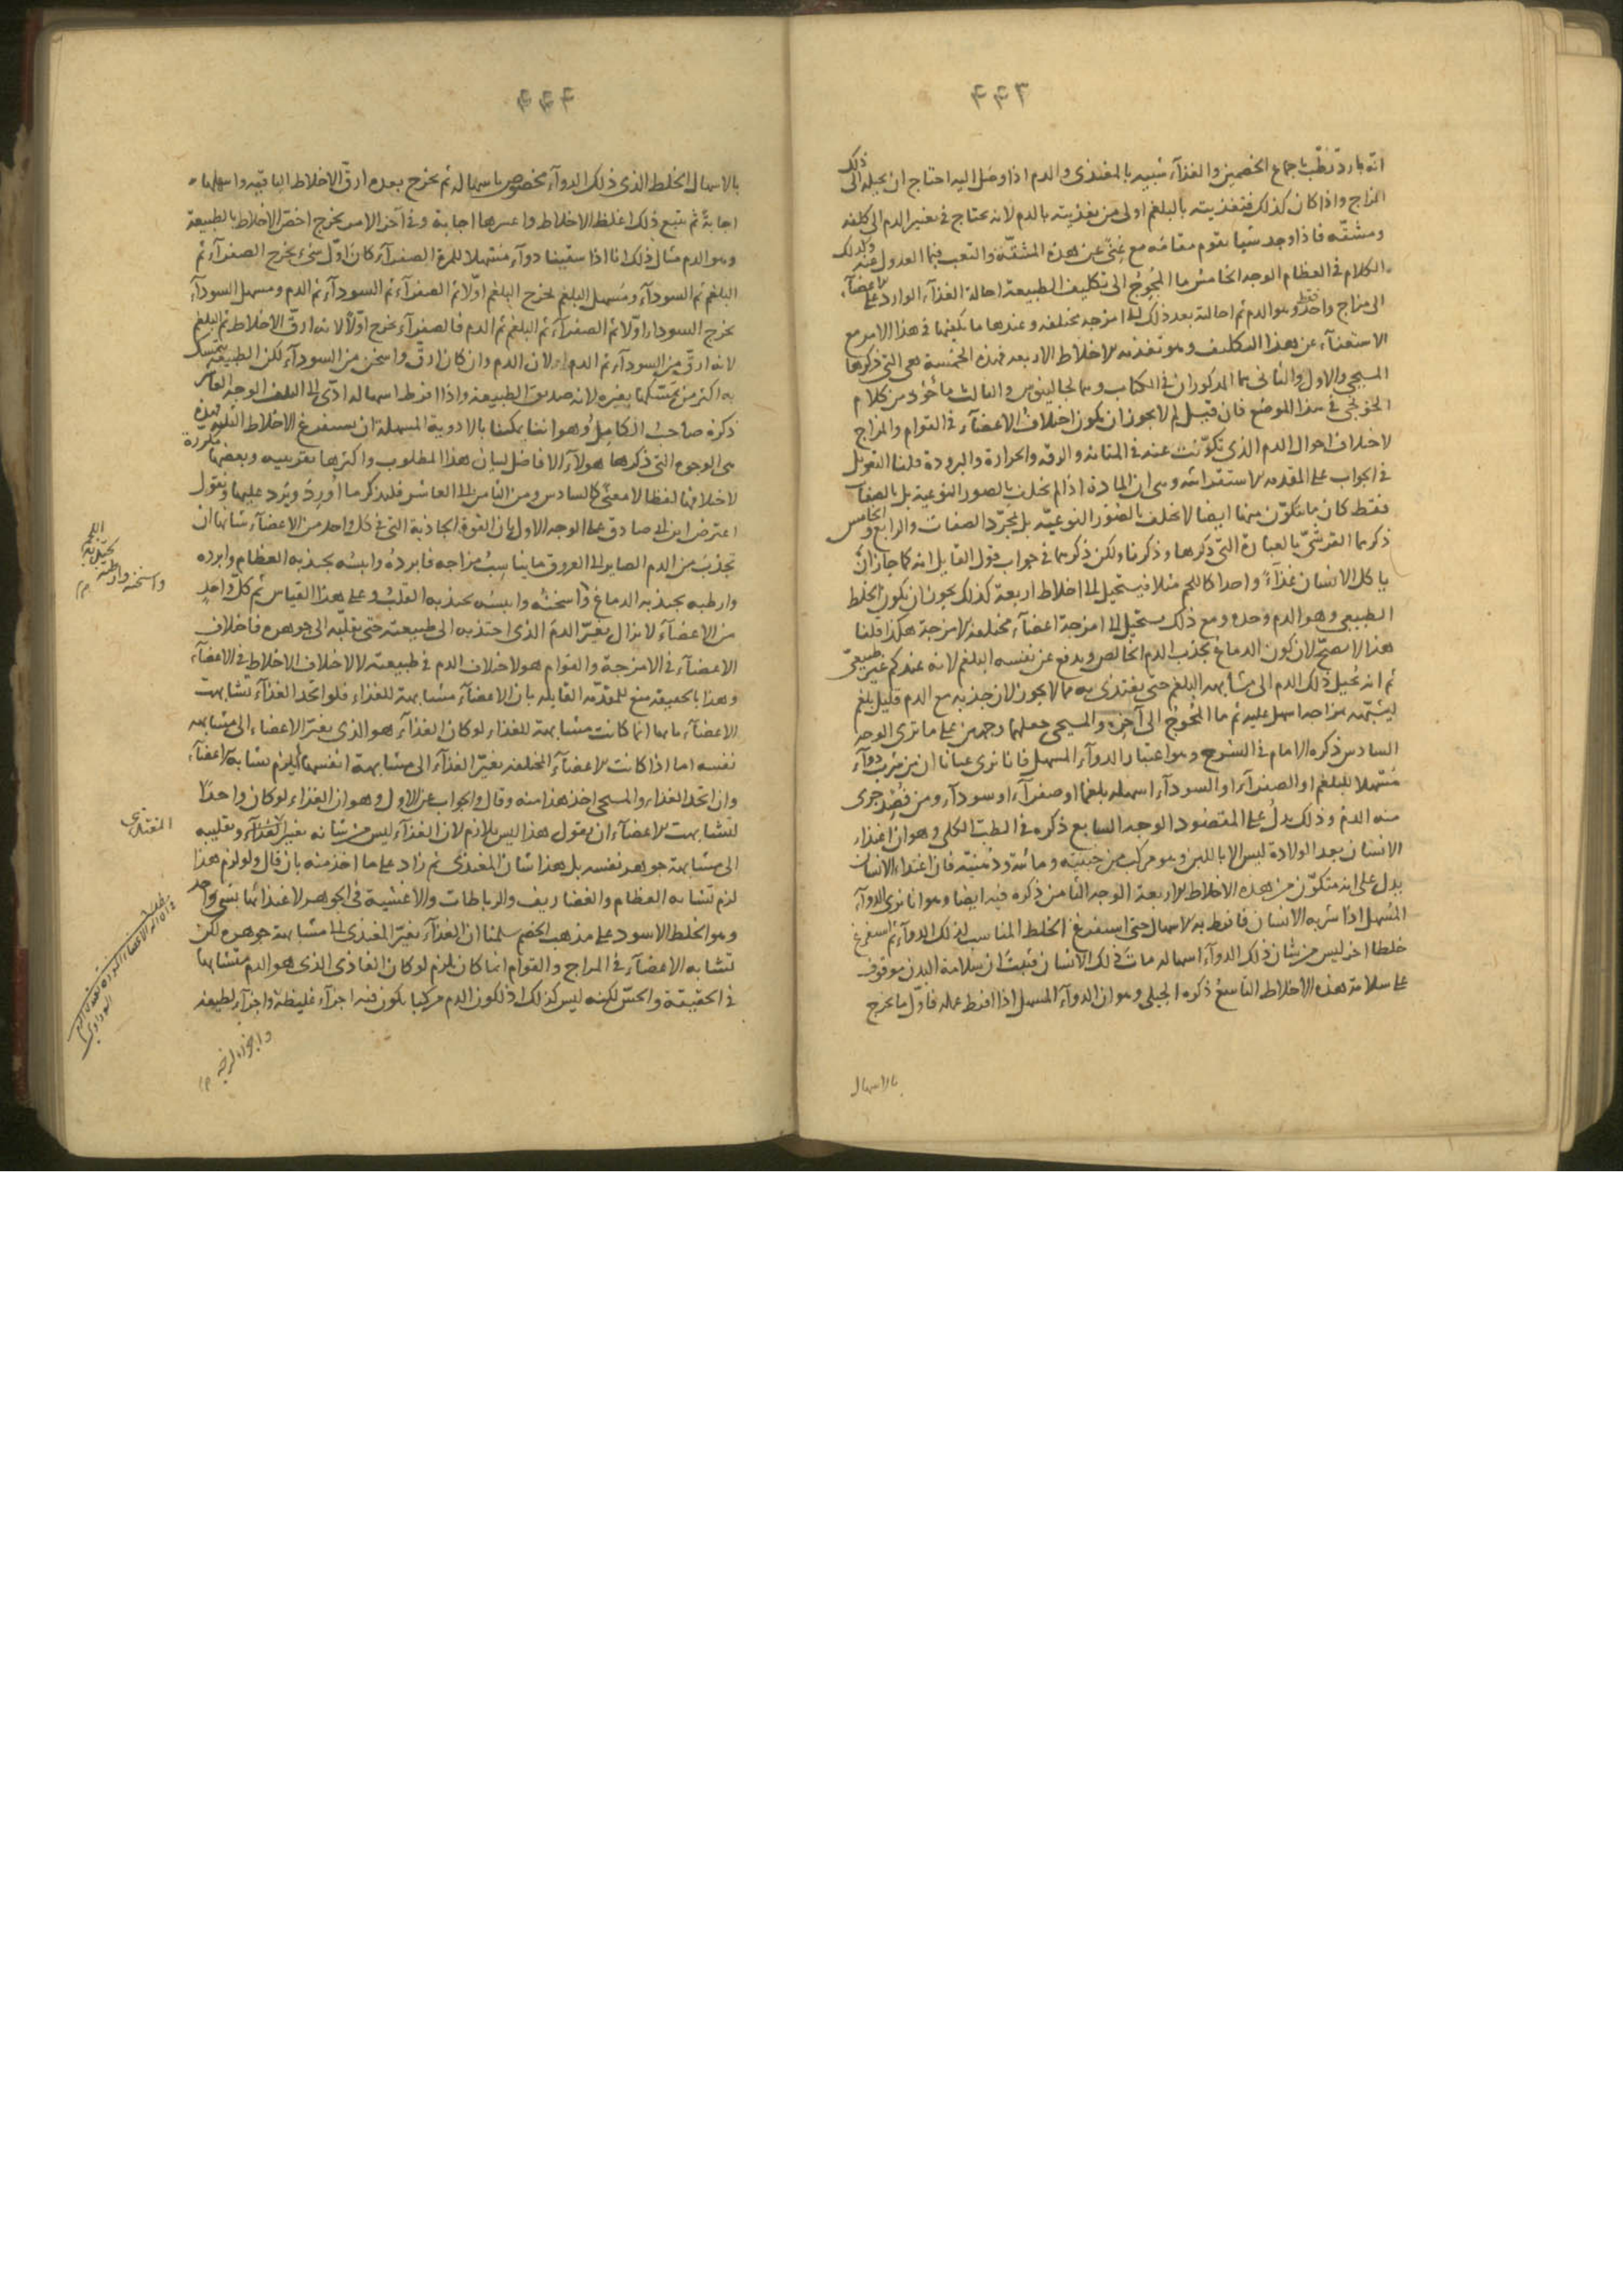 ۴۴۳
انه بارد رطب باجماع الخصمين والغذآء شبيه بالمغتذى والدم اذا وصل اليه احتاج ان يحيله الى ذلك
المزاج واذا كان كذلك فتغذيته بالبلغم اولى من تغذيته بالدم لانه يحتاج فى تغيير الدم الى كلفه
ومشقه فاذا وجد شيا يقوم مقامه مع غنى عن هذه المشقة والتعب فبما العدول عنه وكذلك
الكلام فى العظام الوجه الخامس ما المحوج الى تكليف الطبيعة احالة الغذآء الوارد على الاعضآء
الى مزاج واحد فقط وهو الدم ثم احالته بعد ذلك الى امزجه مختلفه وعندها ما يكفيها فى هذا الامر مع
الاستغنآء عن هذا التكليف وهو تغذيه الاخلاط الاربعه فهذه الخمسة هى التى ذكرها
المسيحى والاول والثانى هما المذكوران فى الكتاب وهما لجالينوس والثالث ماخوذ من كلام
الخونجى فى هذا الموضع فان قيل لم لا يجوز ان يكون اختلاف الاعضآء فى القوام والمزاج
لاختلاف احوال الدم الذى تكونت عنه فى المتانه والرقه والحرارة والبرودة قلنا التعويل
فى الجواب على المقدمه الاستقرائيه وهى ان المادة اذا لم تختلف بالصور النوعية بل بالصفات
فقط كان ما يتكون منها ايضا لا يختلف بالصور النوعيه بل بمجرد الصفات والرابع والخامس
ذكرهما القرشى بالعبارة التى ذكرها وذكرنا ولكن ذكرهما فى جواب قول القايل انه كما جاز ان
ياكل الانسان غذآءً واحدا كاللحم مثلا فيستحيل الى اخلاط اربعة كذلك يجوز ان يكون الخلط
الطبيعى وهو الدم وحده ومع ذلك يستحيل الى امزجة اعضآء مختلفة الامزجة هكذا قلنا
هذا لا يصح لان كون الدماغ يجذب الدم الخالص ويدفع عن نفسه البلغم لانه عندكم غير طبيعى
ثم انه يحيل ذلك الدم الى مشابهه البلغم حتى يغتذى به مما لا يجوز لان جذبه مع الدم قليل بلغم
ليشبهه مزاجه اسهل عليه ثم ما المحوج الى آخره والمسيحى جعلهما وجهين على ما ترى الوجه
السادس ذكره الامام فى الشرح وهو اعتبار الدوآء المسهل فانا نرى عيانا ان من شرب دوآء
مسهلا للبلغم او الصفرآء او السودآء اسهله بلغما او صفرآء او سودآء ومن فصد جرى
منه الدم وذلك يدل على المقصود الوجه السابع ذكره فى الطب الكلى وهو ان اغتذاء
الانسان بعد الولادة ليس الا باللبن وهو مركب من جبنيه ومائية ودهنية فان اغتذاء الانسان
يدل على انه متكون من هذه الاخلاط الاربعة الوجه الثامن ذكره فيه ايضا وهو انا نرى الدوآء
المسهل اذا شربه الانسان فافرط به الاسهال حتى استفرغ الخلط المناسب لذلك الدوآء ثم استفرغ
خلطا اخر ليس من شان ذلك الدوآء اسهاله مات ذلك الانسان فثبت ان سلامة البدن موقوف
على سلامة هذه الاخلاط التاسع ذكره الجيلى وهو ان الدوآء المسهل اذا افرط عمله فاول ما يخرج
بالاسهال
۴۴۴
بالاسهال الخلط الذى ذلك الدوآء مخصوص باسهاله ثم يخرج بعده ارق الاخلاط الباقيه واسهلها
اجابة ثم يتبع ذلك اغلظ الاخلاط واعسرها اجابة وفى آخر الامر يخرج اخص الاخلاط بالطبيعة
وهو الدم مثال ذلك انا اذا سقينا دوآء مسهلا للمرة الصفرآء كان اول شىء يخرج الصفرآء ثم
البلغم ثم السودآء ومسهل البلغم يخرج البلغم اولا ثم الصفرآء ثم السودآء ثم الدم ومسهل السودآء
يخرج السودا اولا ثم الصفرآء ثم البلغم ثم الدم فالصفرآء يخرج اولا لانه ارق الاخلاط ثم البلغم
لانه ارق من السودآء ثم الدم لان الدم وان كان ارق واسخن من السودآء لكن الطبيعه يتمسك
به اكثر من تمسكها بغيره لانه صديق الطبيعة واذا افرط اسهاله ادى الى التلف الوجه العاشر
ذكره صاحب الكامل وهو اننا يمكننا بالادوية المسهلة ان نستفرغ الاخلاط الثلثه فهذه
هى الوجوه التى ذكرها هولآء الافاضل لبيان هذا المطلوب واكثرها تقريبيه وبعضها مكررة
لاختلافها لفظا لا معنى كالسادس ومن الثامن الى العاشر فلنذكر ما اُورد ويرد عليها ونقول
اعترض ابن ابى صادق على الوجه الاول بان القوة الجاذبة التى فى كل واحد من الاعضآء شانها ان
تجذب من الدم الصاير الى العروق ما يناسب مزاجه فابرده وايبسه يجذبه العظام وابرده
وارطبه يجذبه الدماغ واسخنه وايبسه يجذبه القلب وعلى هذا القياس ثم كل واحد
من الاعضآء لا يزال يغير الدم الذى اجتذبه الى طبيعته حتى يقلبه الى جوهره فاختلاف
الاعضآء فى الامزجة والقوام هو لاختلاف الدم فى طبيعته لا لاختلاف الاخلاط فى الاعضآء
وهذا بالحقيقة منع للمقدمة القايله بان الاعضآء مشابهة للغذاء فلو اتحد الغذآء تشابهت
الاعضآء بانها انما كانت مشابهة للغذاء لو كان الغذآء هو الذى يغير الاعضاء الى مشابهه
نفسه اما اذا كانت الاعضآء المختلفه يغير الغذآء الى مشابهة انفسها لم يلزم تشابه الاعضآء
وان اتحد الغذاء والمسيحى اخذ هذا منه وقال والجواب عن الاول وهو ان الغذاء لو كان واحدًا
لتشابهت الاعضآء ان يقول هذا ليس بلازم لان الغذآء ليس من شانه تغيير المغتذى وتقليبه
الى مشابهة جوهر نفسه بل هذا شان المغتذى ثم زاد على ما اخذ منه بان قال ولو لزم هذا
لزم تشابه العظام والغضاريف والرباطات والاغشية فى الجوهر لاغتذائها بشىء واحد
وهو الخلط الاسود على مذهب الخصم سلمنا ان الغذآء يغير المغتذى الى مشابهة جوهره لكن
تشابه الاعضآء فى المزاج والقوام انما كان يلزم لو كان الغاذى الذى هو الدم متشابها
فى الحقيقة والحس لكنه ليس كذلك اذ لكون الدم مركبا يكون فيه اجزآء غليظة واجزآء لطيفه
واسخنه وارطبه
المغتذى